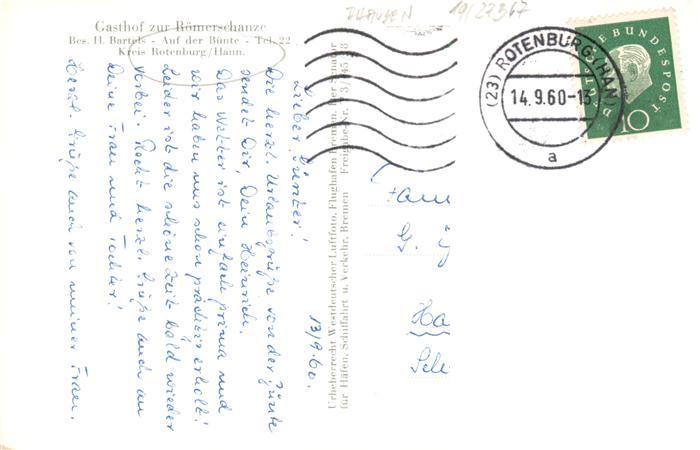 Gasthof zur Römerschanze
Bes. H. Bartels - Auf der Bünte - Tel. 22
Kreis Rotenburg/Hann.
13/9.60.
Lieber Günter!
Die herzl. Urlaubsgrüße von der Bünte
sendet Dir, Dein Heinrich.
Das Wetter ist einfach prima und
wir haben uns schon prächtig erholt!
Leider ist die schöne Zeit bald wieder
vorbei. Recht herzl. Grüße auch an
Deine Frau und Tochter!
Herzl. Grüße auch von meiner Frau.
Urheberrecht Westdeutscher Luftfoto, Flughafen Bremen.
für Häfen, Schiffahrt u. Verkehr, Bremen Freigabe-Nr.
19/27367
(23) ROTENBURG (HAN)
14.9.60-15
a
DEUTSCHE BUNDESPOST
10
Fam
G.
Ha